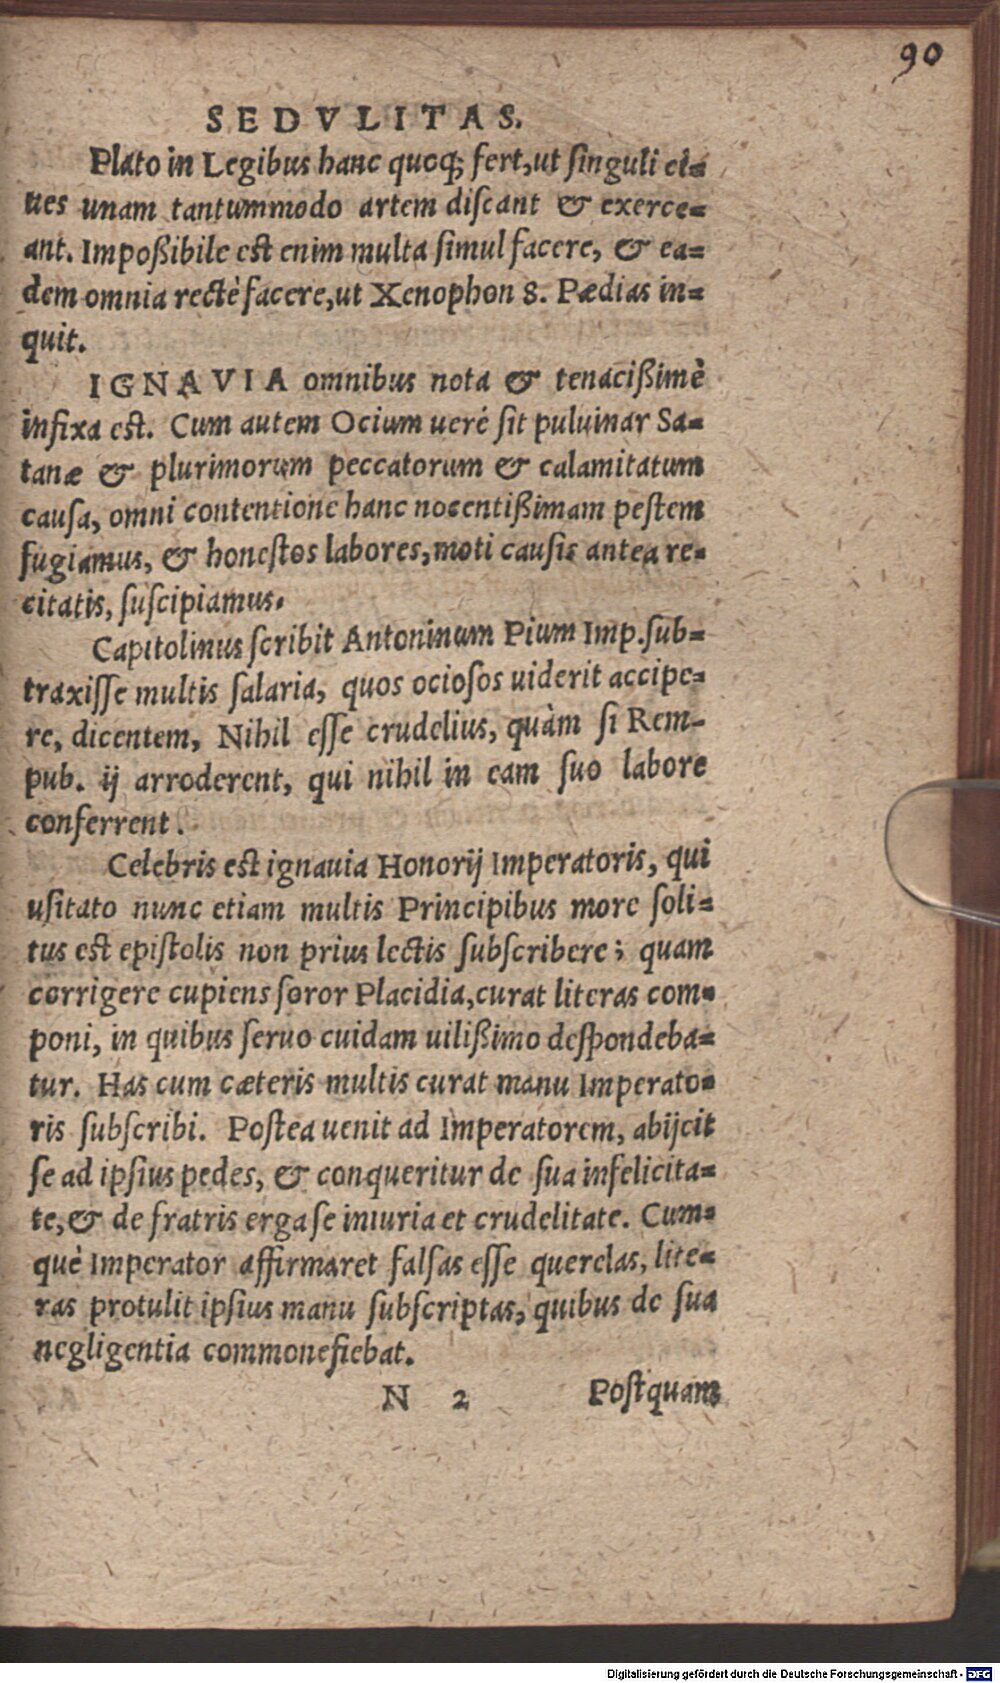 90
SEDVLITAS.
Plato in Legibus hanc quoq; fert, ut singuli ci=
ues unam tantummodo artem discant & exerce=
ant. Impoßibile est enim multa simul facere, & ea=
dem omnia rectè facere, ut Xenophon 8. Pædias in=
quit.
IGNAVIA omnibus nota & tenacißimè
infixa est. Cum autem Ocium ueré sit puluinar Sa=
tanæ & plurimorum peccatorum & calamitatum
causa, omni contentione hanc nocentißimam pestem
fugiamus, & honestos labores, moti causis antea re=
citatis, suscipiamus.
Capitolinus scribit Antoninum Pium Imp. sub=
traxisse multis salaria, quos ociosos uiderit accipe=
re, dicentem, Nihil esse crudelius, quàm si Rem-
pub. ij arroderent, qui nihil in eam suo labore
conferrent.
Celebris est ignauia Honorij Imperatoris, qui
usitato nunc etiam multis Principibus more soli=
tus est epistolis non prius lectis subscribere; quam
corrigere cupiens soror Placidia, curat literas com=
poni, in quibus seruo cuidam uilißimo despondeba=
tur. Has cum cæteris multis curat manu Imperato=
ris subscribi. Postea uenit ad Imperatorem, abijcit
se ad ipsius pedes, & conqueritur de sua infelicita=
te, & de fratris erga se iniuria et crudelitate. Cum=
què Imperator affirmaret falsas esse querelas, lite=
ras protulit ipsius manu subscriptas, quibus de sua
negligentia commonefiebat.
N 2 Postquam
Digitalisierung gefördert durch die Deutsche Forschungsgemeinschaft - DFG